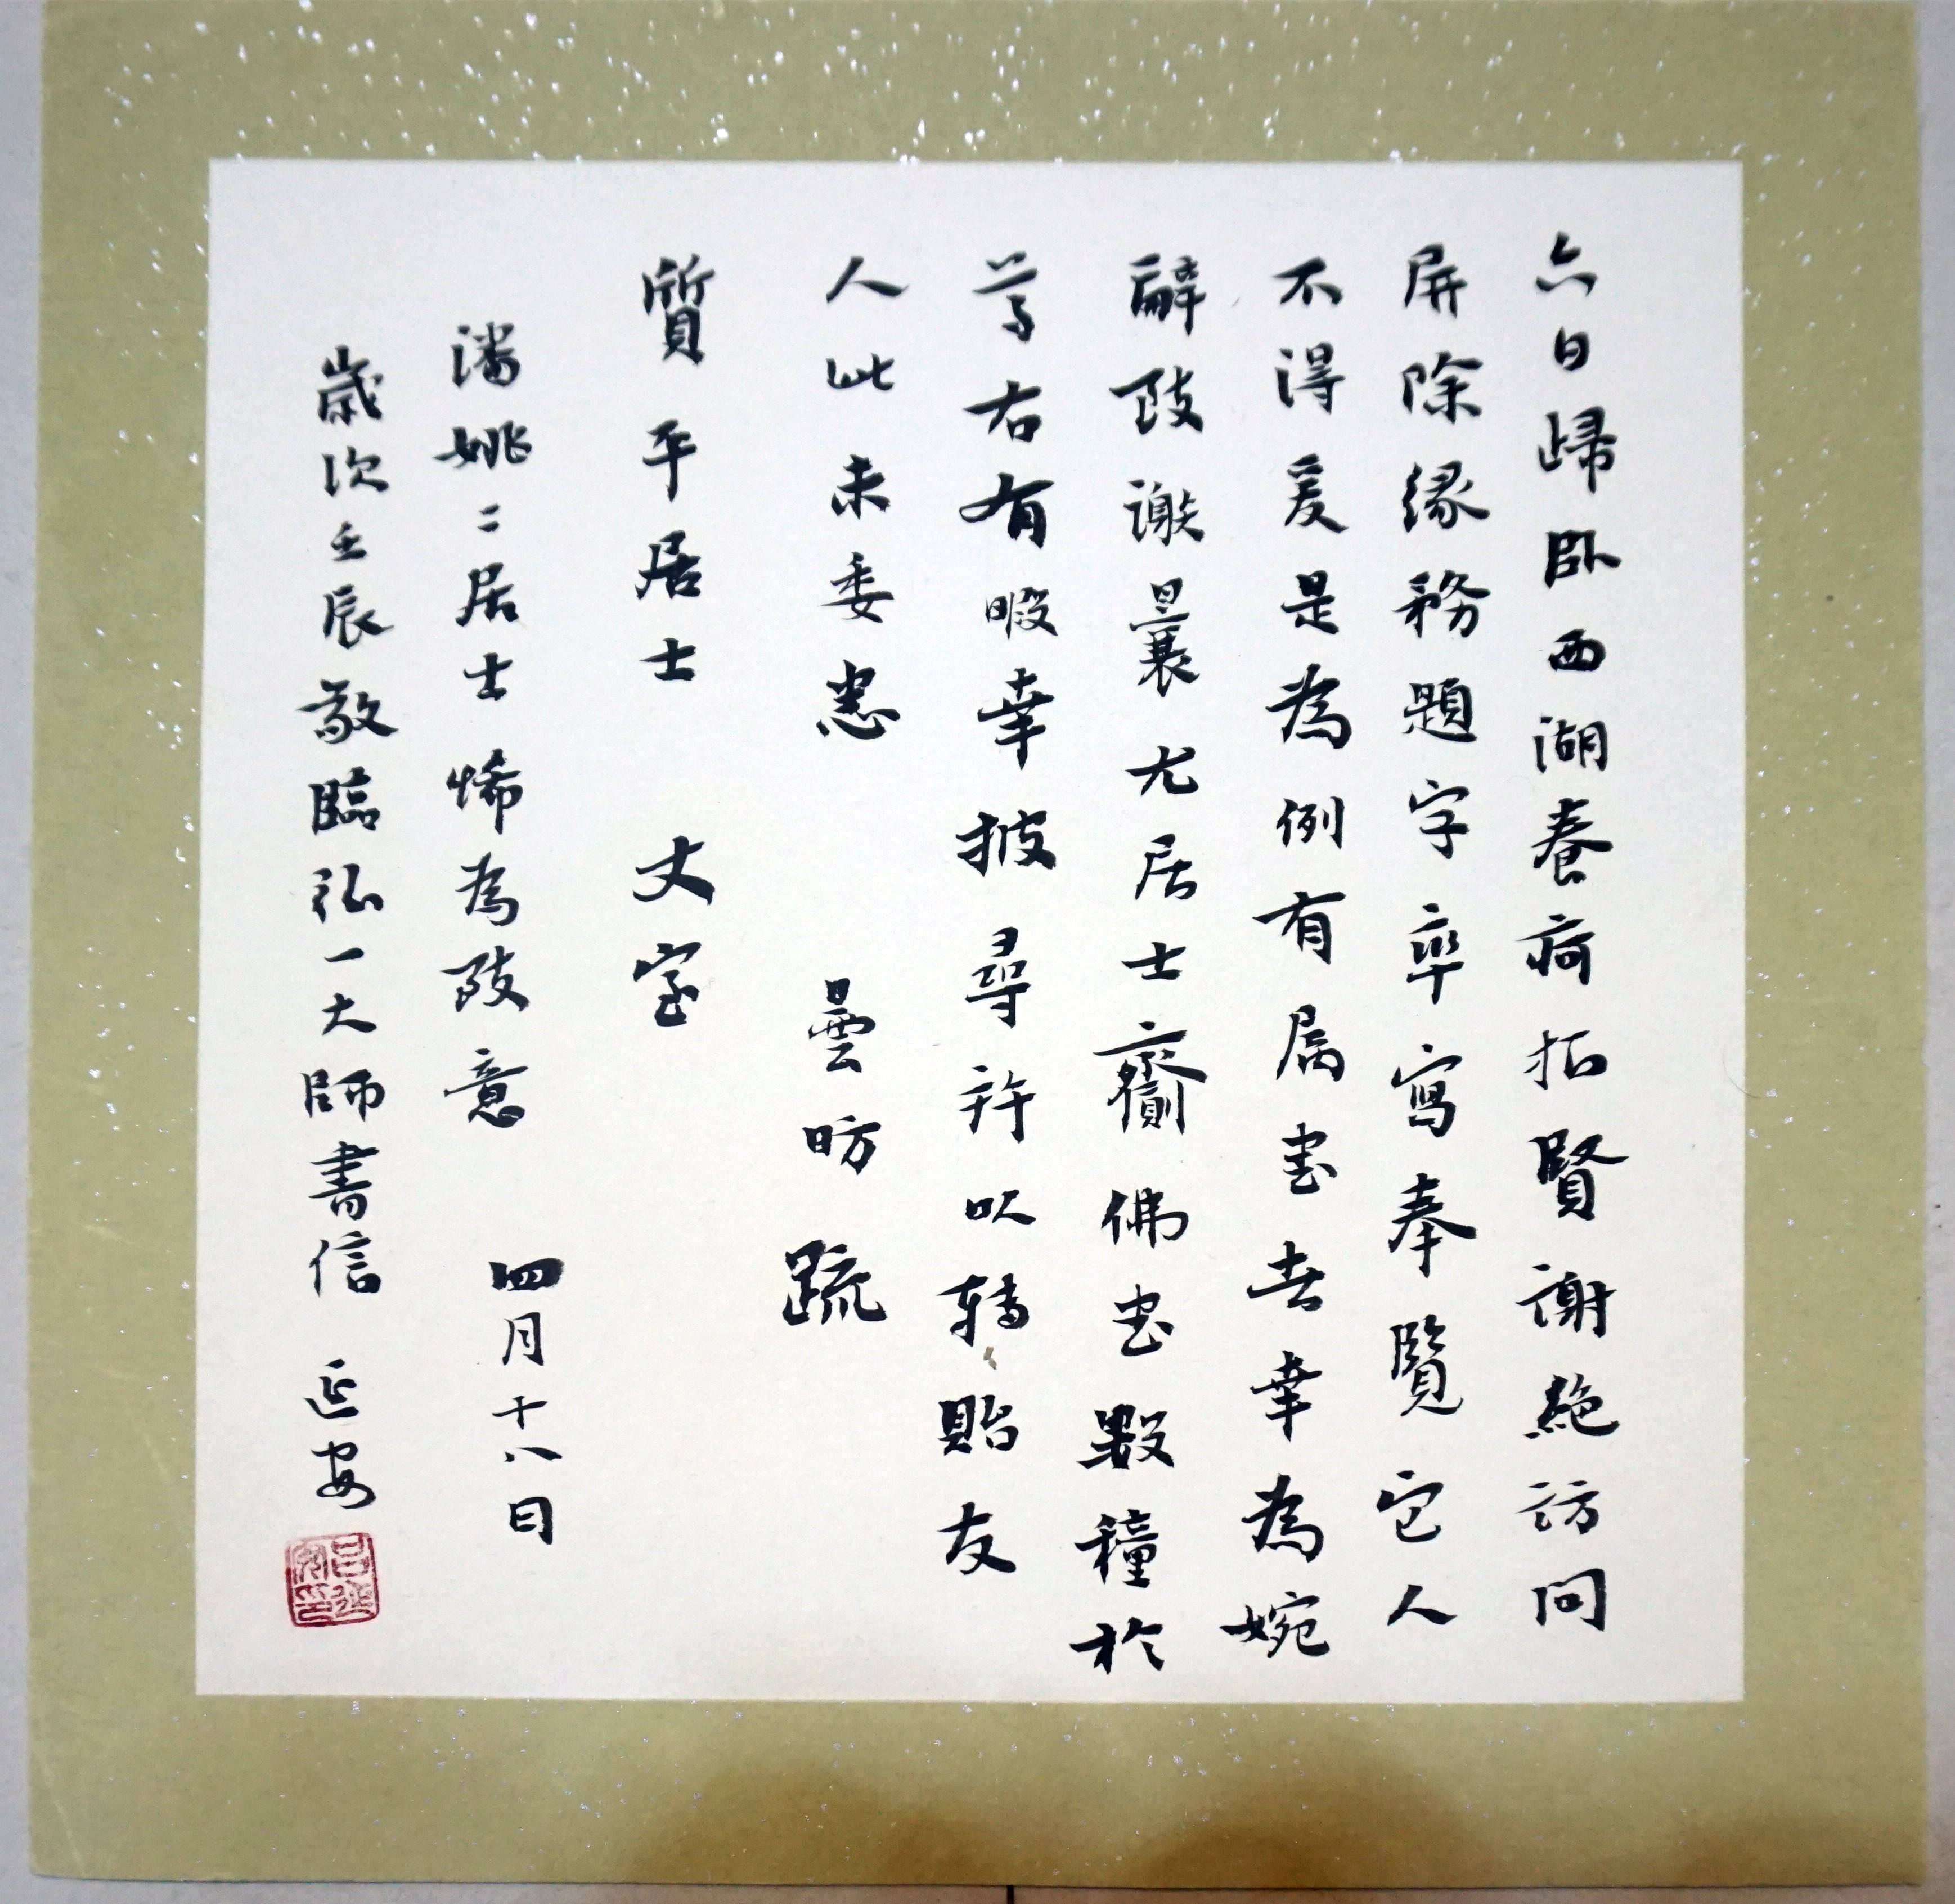 六日歸臥西湖養疴招賢謝絶訪問
屏除緣務題字率寫奉覽它人
不得爰是為例有屬書者幸為婉
辭致謝曩尤居士齋佛書數種於
若右有暇幸披尋并以轉貽友
人此未委悉 曇昉疏
質平居士 丈室
潘姚二居士悕為致意 四月十八日
歲次壬辰敬臨弘一大師書信 延安
呂延安印